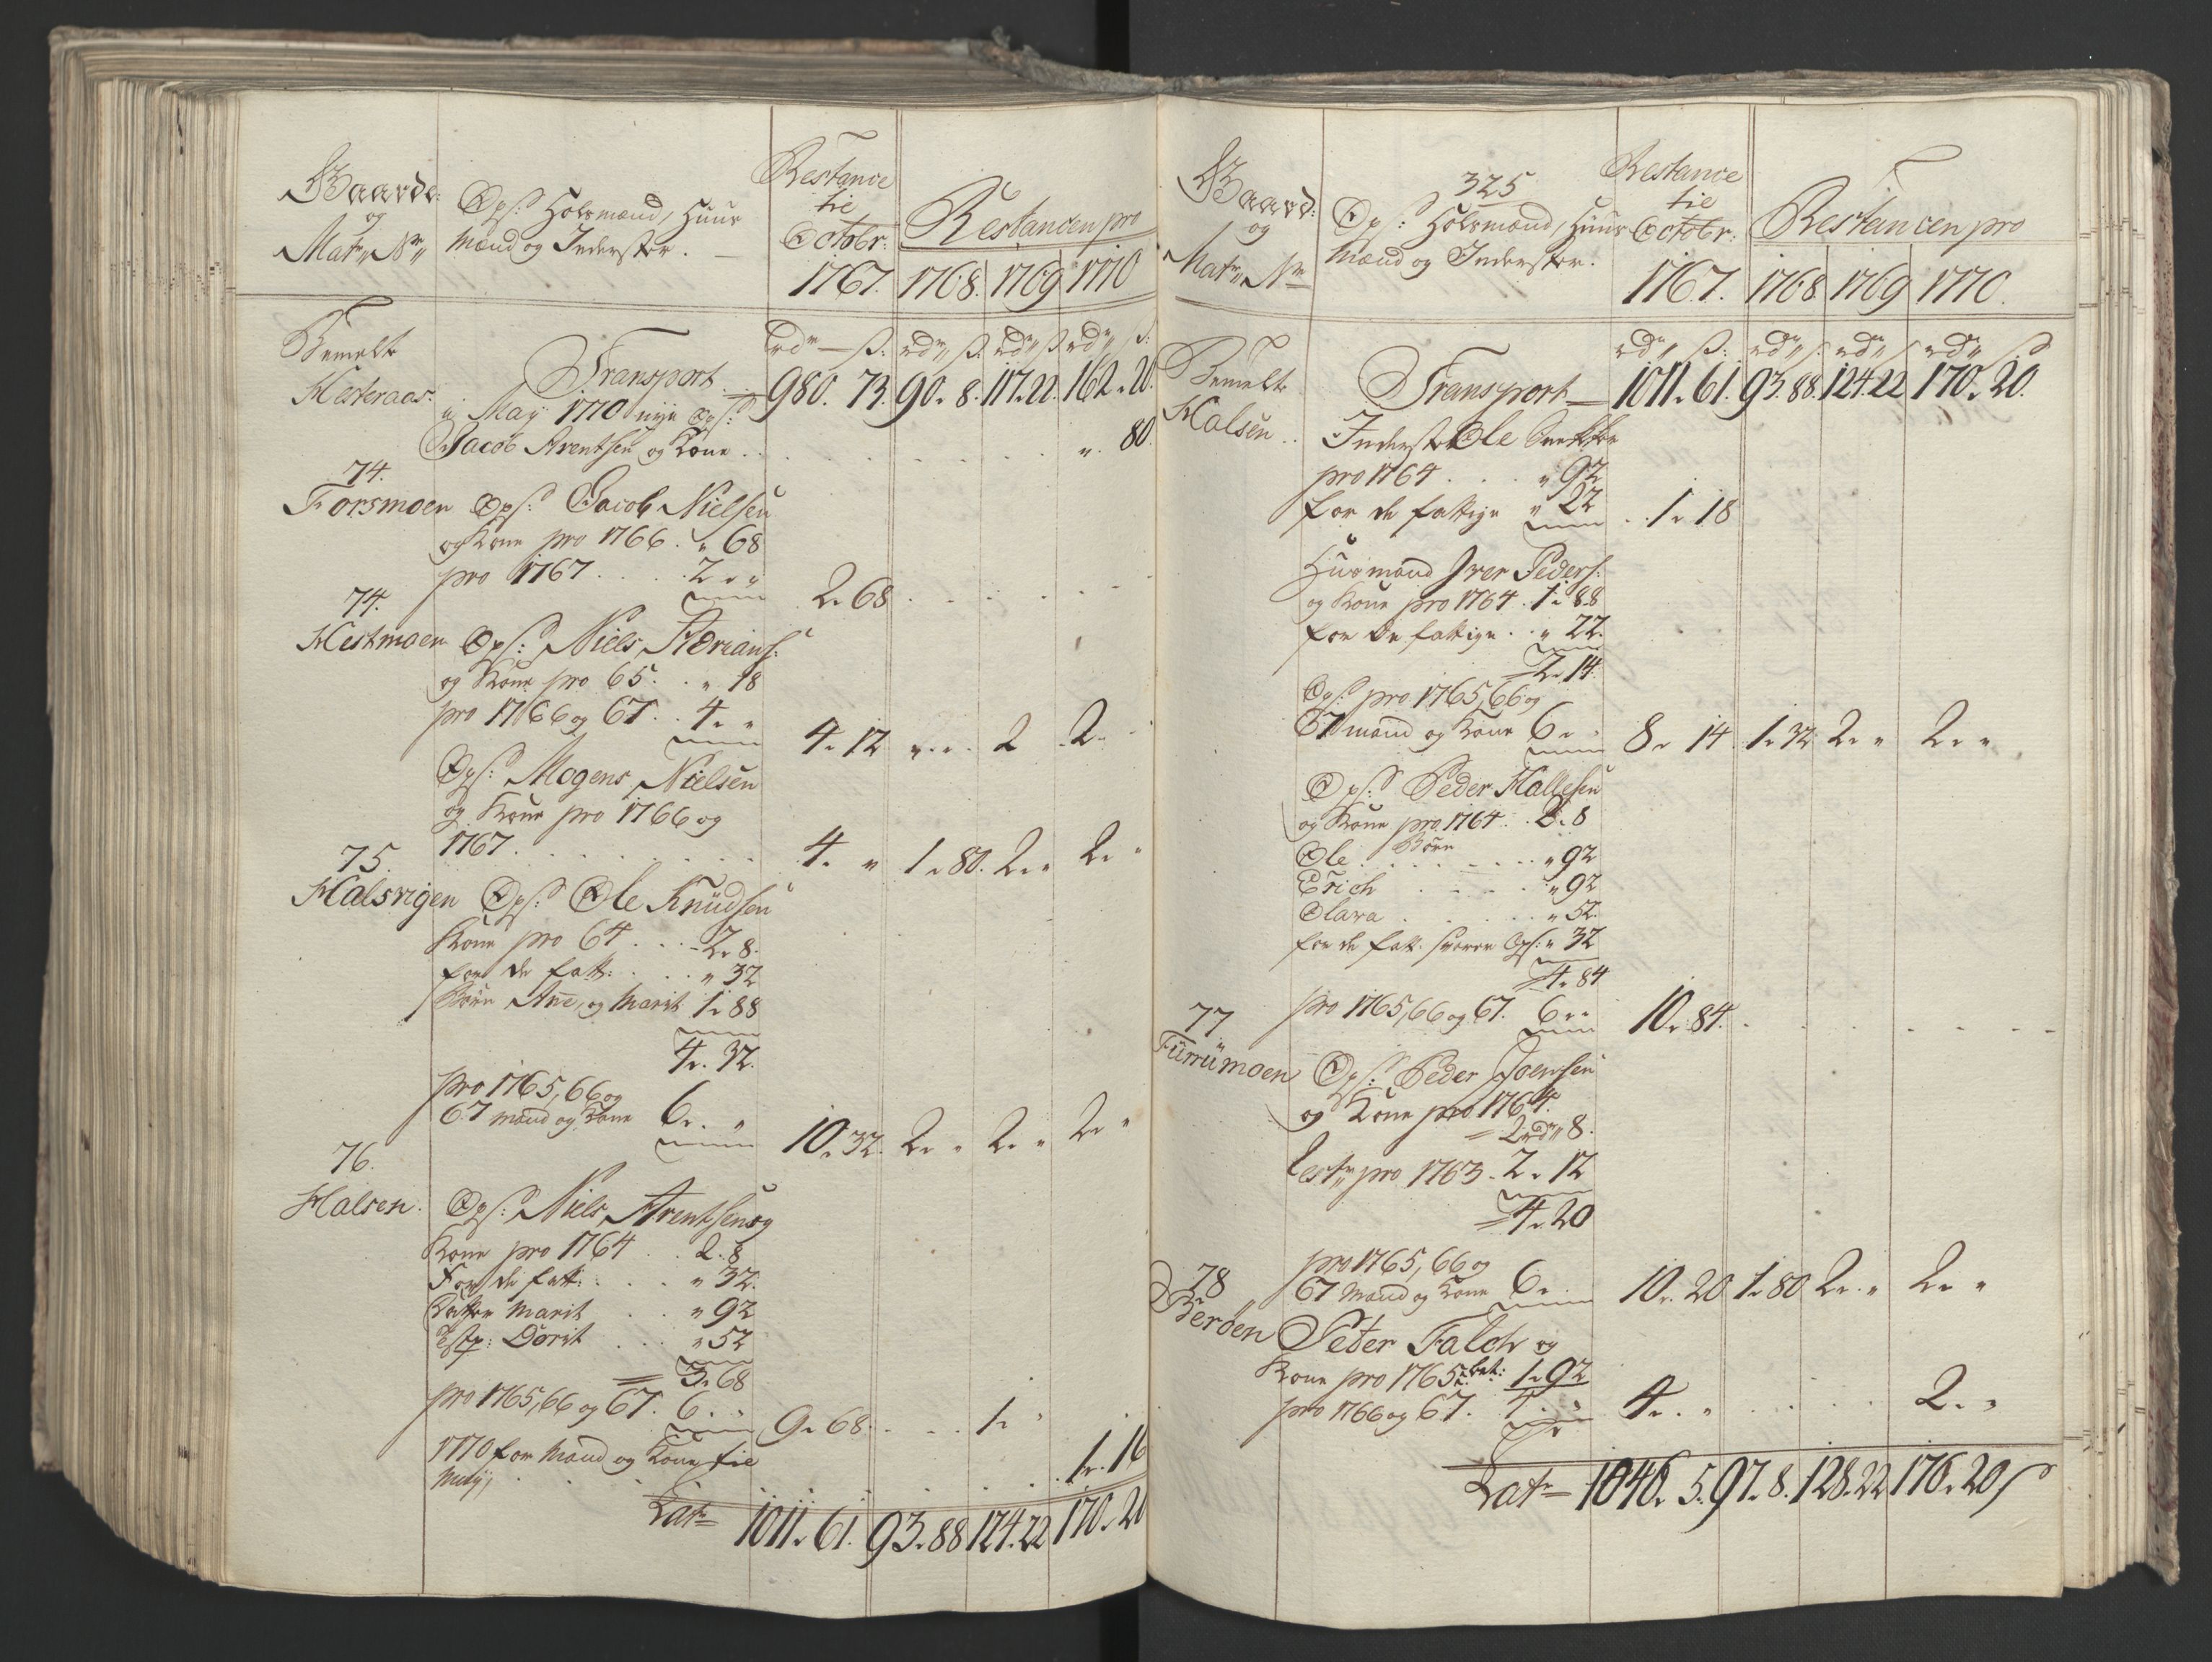 Gaarde:
og
Matr„ Nr„
Ops: Holsmænd, Huus
Mænd og Inderster.
Restance
til
Octobr:
1767.
Restancen pro
1768. 1769 1770
Bemelte
Hesteraas.
Transport
rdr — ß. rdr„ ß. rdr„ ß rdr„ ß:
980. 73. 90. 8. 117. 22. 162. 20.
May 1770 nye Ops:
Jacob Arentsen og Kone . . „ 80.
74.
Forsmoen Ops: Jacob Nielsen
og Kone pro 1766 . „ 68
pro 1767 . . . . 2. „ 2. 68
74.
Hestmoen Ops: Niels Adrians:
og Kone pro 65. . „ 18
pro 1766 og 67. . 4. „ 4. 12 „. „. 2 2.
Ops: Mogens Nielsen
og Kone pro 1766 og
1767. . . . 4. „ 1. 80. 2. „ 2. „
75.
Halsvigen Ops: Ole Knudsen
Kone pro 64 . . . 2. 8.
for de fatt: . . . „ 32
Børn Ane, og Marit 1. 88
4. 32.
pro 1765, 66 og
67 Mand og Kone 6. „ 10. 32. 2. „ 2. „ 2. „
76.
Halsen. Ops: Niels Arentsen og
Kone pro 1764 . . 2. 8
For de fatt: . . . „ 32.
Datter Marit . . „ 92
Dorit . . . „ 52
3. 68
pro 1765, 66 og 67. 6. „ 9. 68. . . . 1. „
1770 for Mand og Kone til
Maij . . . 1. 16
Lats 1011. 61. 93. 88 124. 22 170. 20
Gaard:
og
Matr„ Nr
325
Ops: Holsmænd, Huus
Mænd og Inderster.
Restance
til
Octobr:
1767.
Restancen pro
1768 1769 1770.
Bemelte
Halsen . .
Transport
rdr„ ß. rdr„ ß. rdr„ ß rdr„ ß
1011. 61. 93. 88. 124. 22 170. 20.
Inderst Ole
pro 1764 . . . „ 92
for de fattige „ 22 . . 1. 18
Husmand Iver Peders:
og Kone pro 1764 . 1. 88
for de fattige . . „ 22.
2. 14.
Ops: pro 1765, 66 og
67 Mand og Kone 6. „ 8. 14 1. 32 2. „ 2. „
Ops: Peder Hallesen
og Kone pro 1764 . . 2. 8
Børn
Ole . . . . „ 92
Erich . . . . „ 92
Olava . . . . „ 52.
for de fatt. svarer Ops: „ 32
4. 84
pro 1765, 66 og 67. 6. „ 10. 84.
77
Furrumoen Ops: Peder Joensen
og Kone pro 1764.
2 rdr„ 8.
pro 1763. 2. 12
4. 20
pro 1765, 66 og
67 Mand og Kone 6. 10. 20 1. 80 2. „ 2. „
78
Derøen Peter Falch og
Kone pro 1765 bet: 1. 92
pro 1766 og 67. 4. „ 4. „ . . . . 2. „
Lats 1046. 5. 97. 8. 128. 22 176. 20 ß